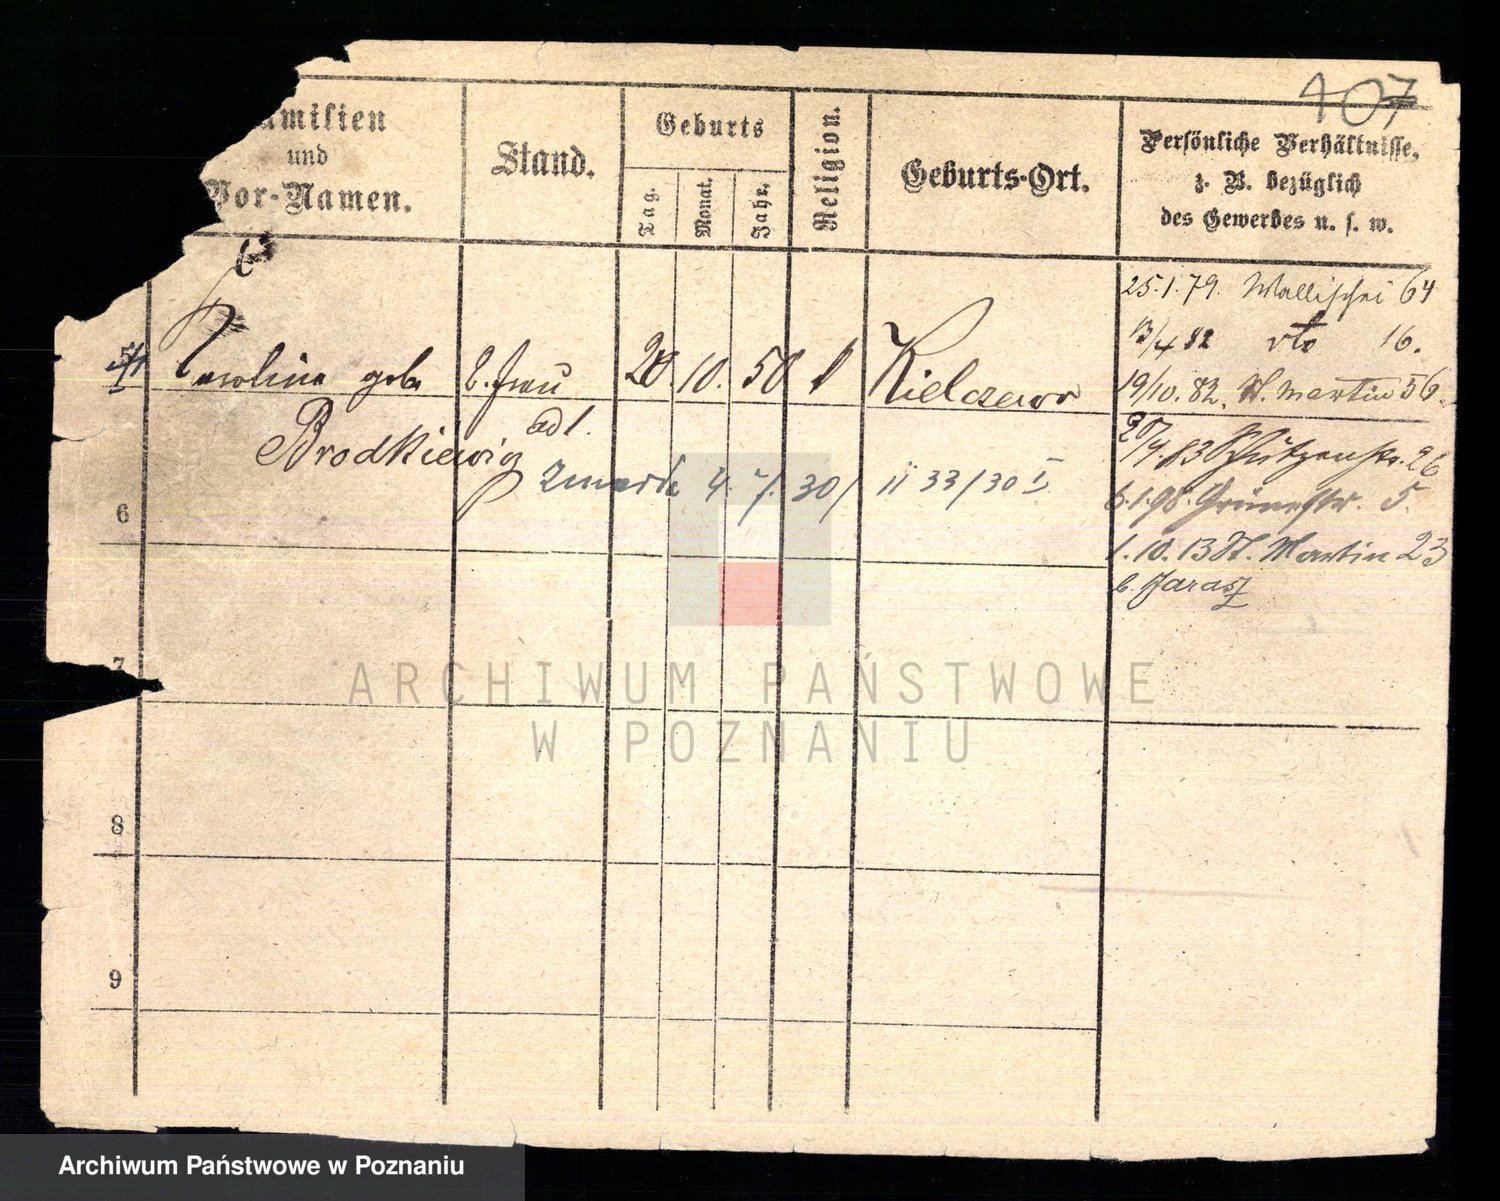 407
Familien
und
Vor-Namen.
Stand.
Geburts
Tag.
Monat.
Jahr.
Religion.
Geburts-Ort.
Persönliche Verhältnisse,
z. B. bezüglich
des Gewerbes u. s. w.
25.1.79. Wallischei 64
13/4 82 dto 16.
19/10.82. St. Martin 56.
Karolina geb. E. Frau 20. 10. 50 Kielczewo
Brodkiewicz
20/4.83 Schützenstr. 26
zmarła 4. 7. 30/ 33/30 I
6.1.98. Grünestr. 5.
1.10.13 St. Martin 23
b. Jarasz
6
7
8
9
ARCHIWUM PAŃSTWOWE
W POZNANIU
Archiwum Państwowe w Poznaniu